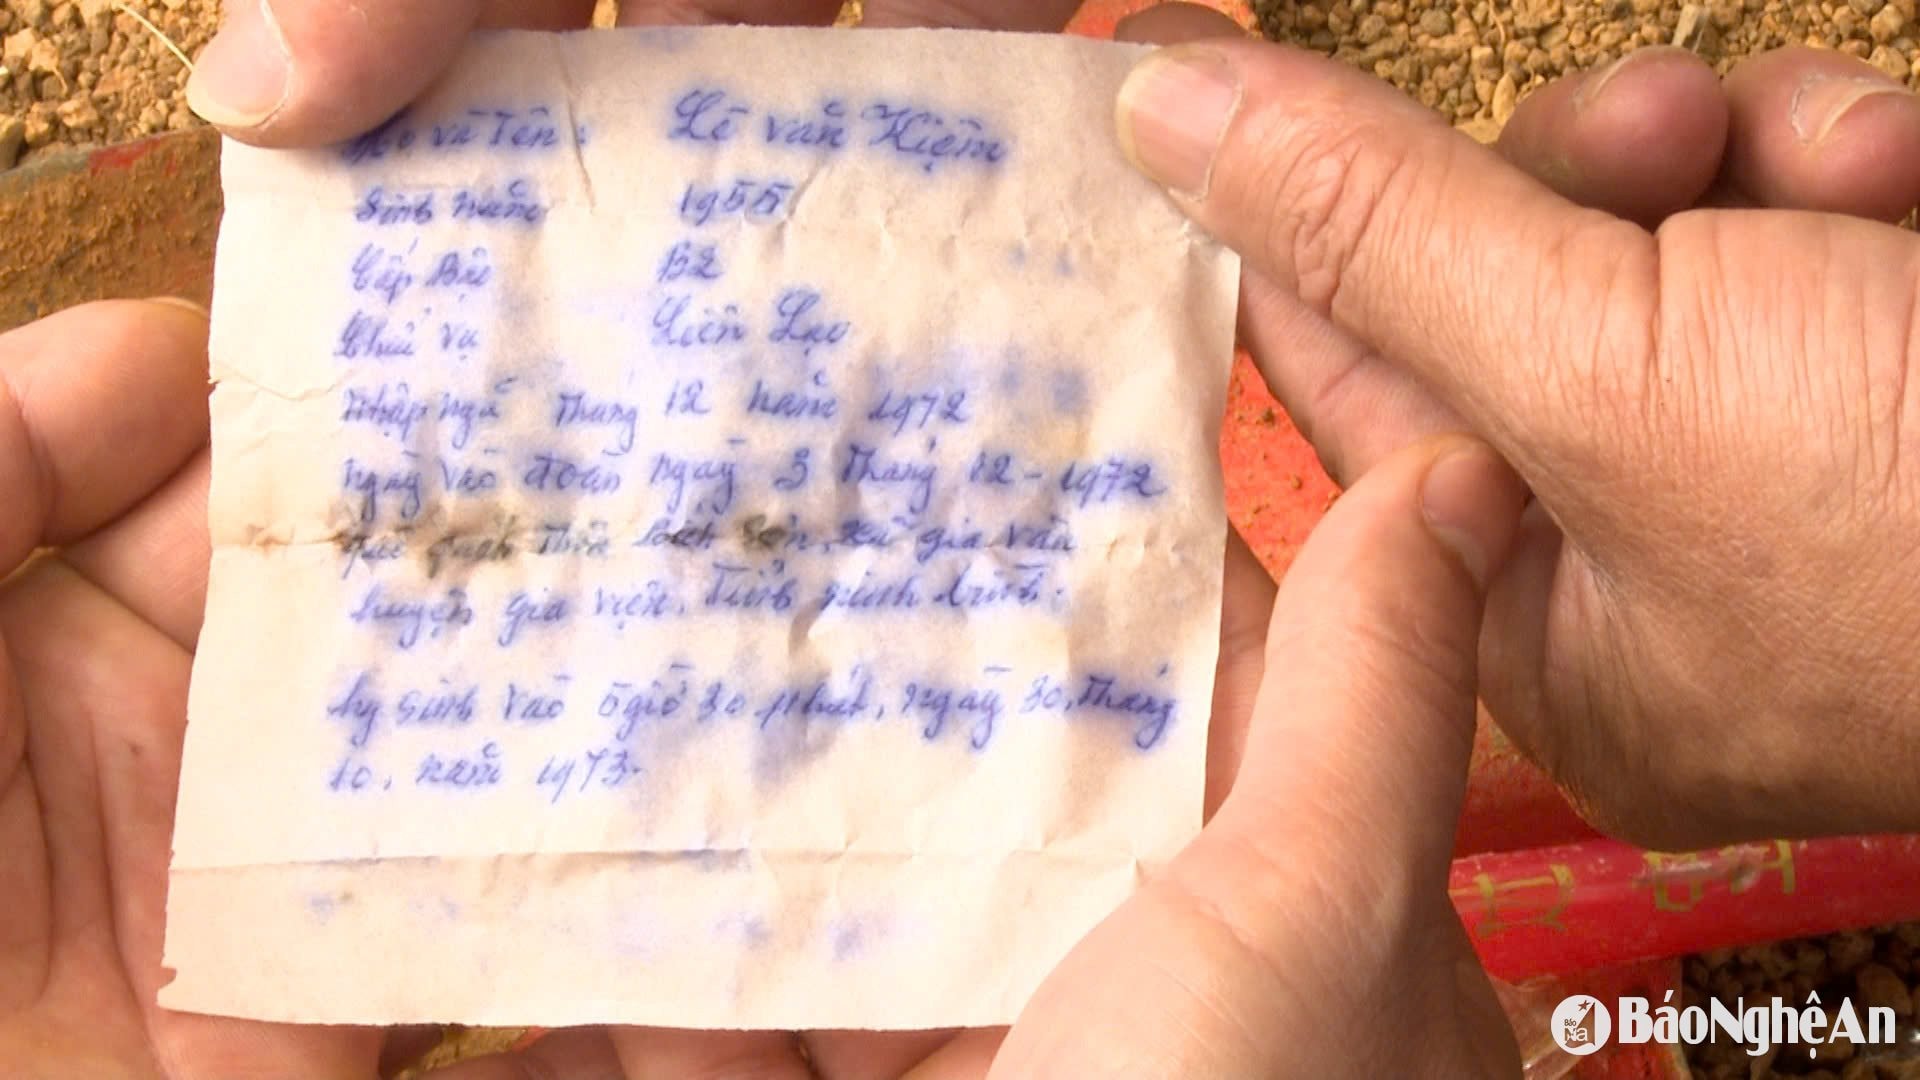 Họ và Tên: Lê Văn Kiệm
Sinh năm 1955
Cấp Bậc B2
Chức vụ Liên Lạc
Nhập ngũ Tháng 12 năm 1972
ngày vào đoàn ngày 3 Tháng 12-1972
quê quán Thôn Sơn, xã gia vân
huyện gia viện, Tỉnh ninh bình.
hy sinh vào giờ 30 phút, ngày 30, Tháng
10, năm 1973.
BáoNghệAn